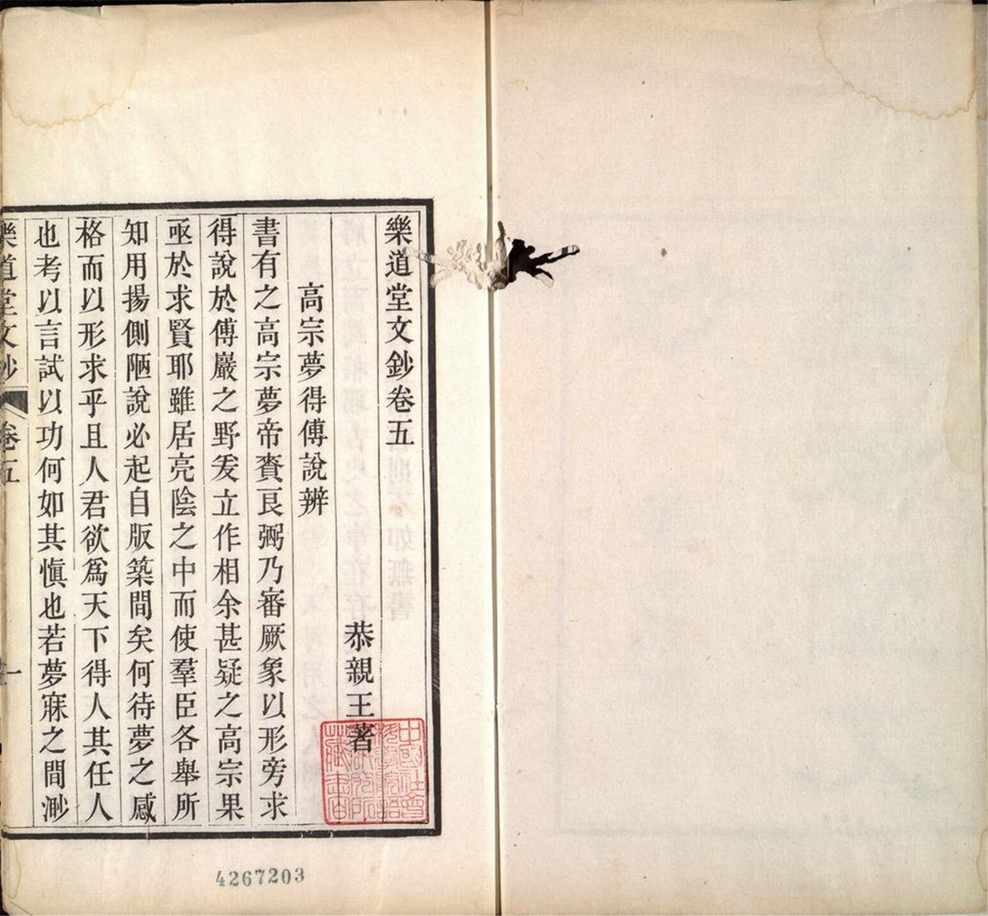 樂道堂文鈔卷五
恭親王著
高宗夢得傅說辨
書有之高宗夢帝賚良弼乃審厥象以形旁求
得說於傅巖之野爰立作相余甚疑之高宗果
亟於求賢耶雖居亮陰之中而使羣臣各舉所
知用揚側陋說必起自版築間矣何待夢之感
格而以形求乎且人君欲爲天下得人其任人
也考以言試以功何如其愼也若夢寐之間渺
樂道堂文鈔
卷五
一
4267203